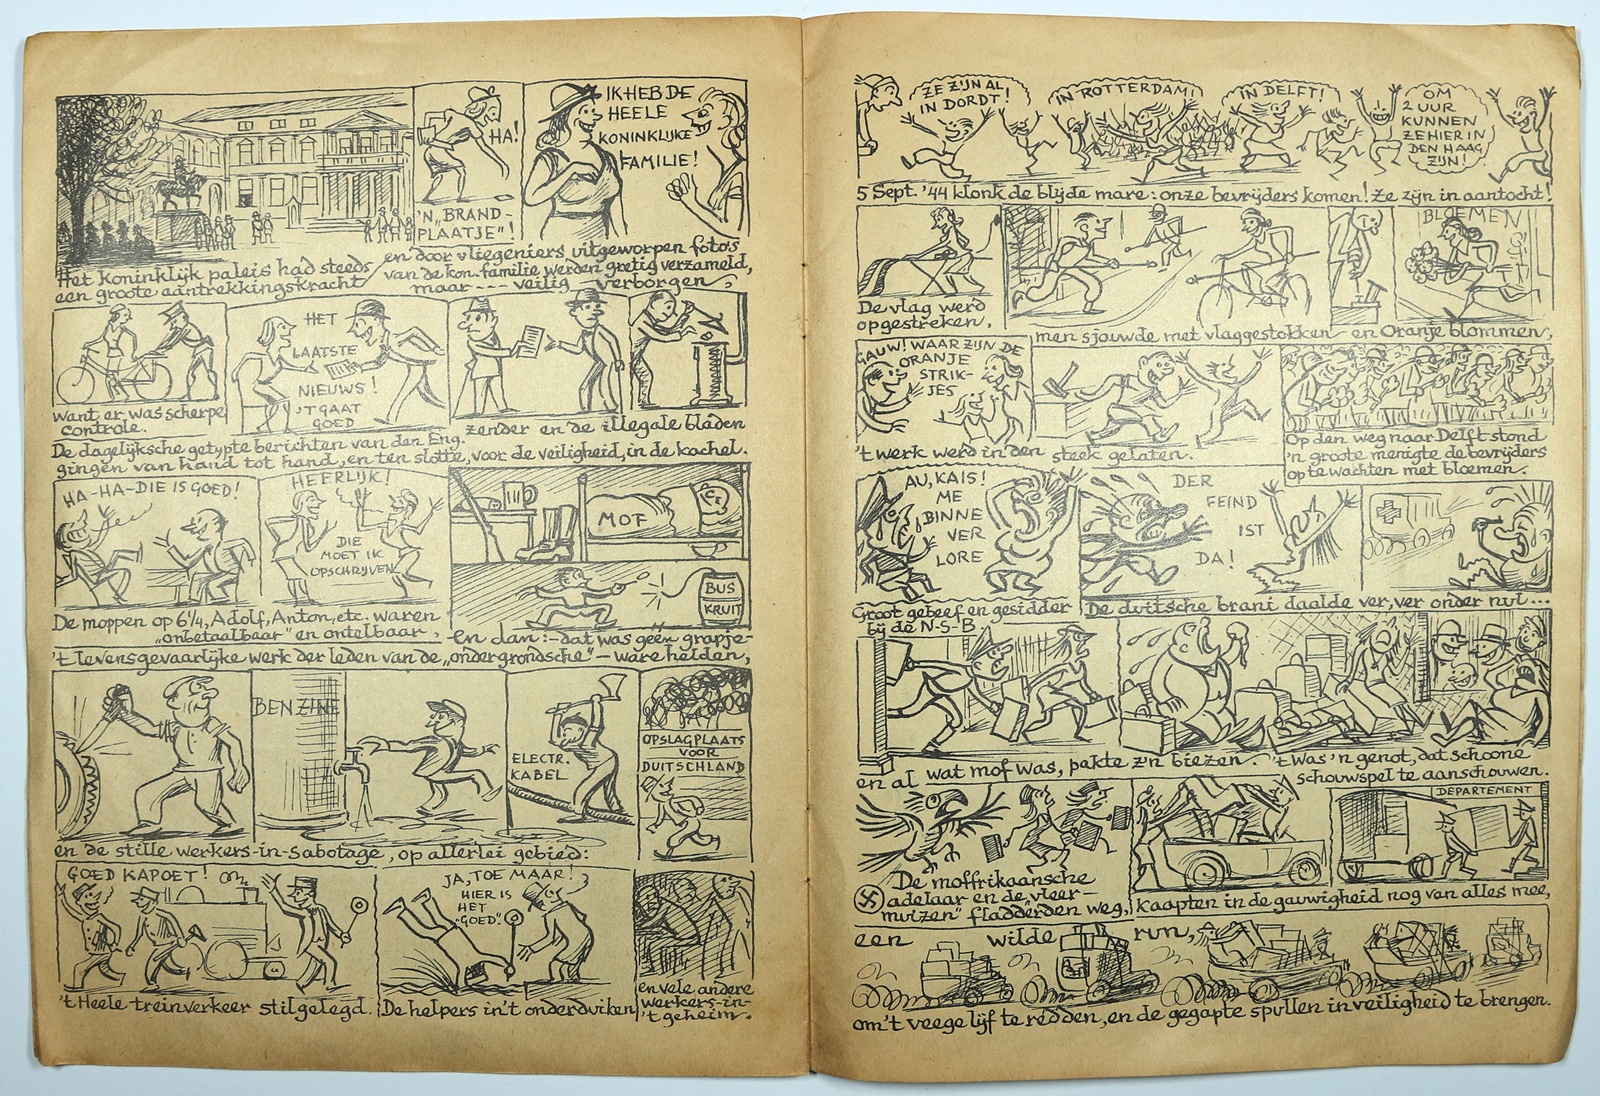 HA!
'N "BRAND-
PLAATJE"!
IK HEB DE
HEELE
KONINKLIJKE
FAMILIE!
Het koninklijk paleis had steeds
een groote aantrekkingskracht
en door vliegeniers uitgeworpen foto's
van de kon. familie werden gretig verzameld,
maar ---- veilig verborgen,
HET
LAATSTE
NIEUWS!
'T GAAT
GOED
want er was scherpe
controle.
De dagelijksche getypte berichten van den Eng.
zender en de illegale bladen
gingen van hand tot hand, en ten slotte, voor de veiligheid, in de kachel.
HA-HA-DIE IS GOED!
HEERLIJK!
DIE
MOET IK
OPSCHRIJVEN
MOF
BUS
KRUIT
De moppen op 6¼, Adolf, Anton, etc. waren
"onbetaalbaar" en ontelbaar,
en dan:- dat was géén grapje-
't levensgevaarlijke werk der leden van de "ondergrondsche" - ware helden,
BENZINE
ELECTR.
KABEL
OPSLAGPLAATS
VOOR
DUITSCHLAND
en de stille werkers-in-Sabotage, op allerlei gebied:
GOED KAPOET!
JA, TOE MAAR!
HIER IS
HET
"GOED".
't Heele treinverkeer stilgelegd.
De helpers in't onderduiken
en vele andere
werkers-in-
't geheim.
ZE ZIJN AL
IN DORDT!
IN ROTTERDAM!
IN DELFT!
OM
2 UUR
KUNNEN
ZE HIER IN
DEN HAAG
ZIJN!
5 Sept. '44 klonk de blijde mare: onze bevrijders komen! Ze zijn in aantocht!
BLOEMEN
De vlag werd
opgestreken,
men sjouwde met vlaggestokken - en Oranje blommen,
GAUW! WAAR ZIJN DE
ORANJE
STRIK-
JES
't werk werd in den steek gelaten.
Op den weg naar Delft stond
'n groote menigte de bevrijders
op te wachten met bloemen.
AU, KAIS!
ME
BINNE
VER
LORE
DER
FEIND
IST
DA!
Groot gebeef en gesidder
bij de N-S-B.
De duitsche brani daalde ver, ver onder nul...
en al wat mof was, pakte z'n biezen.
't Was 'n genot, dat schoone
schouwspel te aanschouwen.
DEPARTEMENT
De moffrikaansche
adelaar en de "vleer-
muizen" fladderden weg,
kaapten in de gauwigheid nog van alles mee,
een wilde run,
om't veege lijf te redden, en de gegapte spullen in veiligheid te brengen.